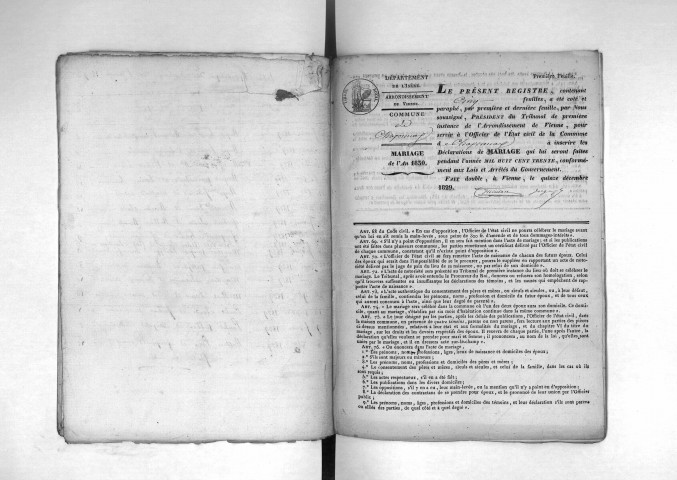 DÉPARTEMENT
DE L'ISÈRE.
ARRONDISSEMENT
DE VIENNE.
COMMUNE
de
Chaponnay
MARIAGE
de l'An 1830.
Première Feuille.
LE PRÉSENT REGISTRE, contenant
feuilles, a été coté et
paraphé, par première et dernière feuille, par Nous
soussigné, PRÉSIDENT du Tribunal de première
instance de l'Arrondissement de Vienne, pour
servir à l'Officier de l'État civil de la Commune
à Chaponnay à inscrire les
Déclarations de MARIAGE qui lui seront faites
pendant l'année MIL HUIT CENT TRENTE, conformé-
ment aux Lois et Arrêtés du Gouvernement.
FAIT double, à Vienne, le quinze décembre
1829.
ART. 68 du Code civil. « En cas d'opposition, l'Officier de l'état civil ne pourra célébrer le mariage avant
qu'on lui en ait remis la main-levée, sous peine de 300 fr. d'amende et de tous dommages-intérêts ».
ART. 69. « S'il n'y a point d'opposition, il en sera fait mention dans l'acte de mariage; et si les publications
ont été faites dans plusieurs communes, les parties remettront un certificat délivré par l'Officier de l'état civil
de chaque commune, constatant qu'il n'existe point d'opposition ».
ART. 70. « L'Officier de l'état civil se fera remettre l'acte de naissance de chacun des futurs époux. Celui
des époux qui serait dans l'impossibilité de se le procurer, pourra le suppléer en rapportant un acte de noto-
riété délivré par le juge de paix du lieu de sa naissance, ou par celui de son domicile ».
ART. 72. « L'acte de notoriété sera présenté au Tribunal de première instance du lieu où doit se célébrer le
mariage. Le Tribunal, après avoir entendu le Procureur du Roi, donnera ou refusera son homologation, selon
qu'il trouvera suffisantes ou insuffisantes les déclarations des témoins, et les causes qui empêchent de rap-
porter l'acte de naissance ».
ART. 73. « L'acte authentique du consentement des pères et mères, ou aïeuls et aïeules, ou, à leur défaut,
celui de la famille, contiendra les prénoms, noms, profession et domicile du futur époux, et de tous ceux
qui auront concouru à l'acte, ainsi que leur degré de parenté ».
ART. 74. « Le mariage sera célébré dans la commune où l'un des deux époux aura son domicile. Ce domi-
cile, quant au mariage, s'établira par six mois d'habitation continue dans la même commune ».
ART. 75. « Le jour désigné par les parties, après les délais des publications, l'Officier de l'état civil, dans
la maison commune, en présence de quatre témoins, parens ou non parens, fera lecture aux parties des pièces
ci-dessus mentionnées, relatives à leur état et aux formalités du mariage, et du chapitre VI du titre du
mariage, sur les droits et les devoirs respectifs des époux. Il recevra de chaque partie, l'une après l'autre, la
déclaration qu'elles veulent se prendre pour mari et femme; il prononcera, au nom de la loi, qu'elles sont
unies par le mariage, et il en dressera acte sur-le-champ ».
ART. 76. « On énoncera dans l'acte de mariage,
1.° Les prénoms, noms, professions, âges, lieux de naissance et domiciles des époux;
2.° S'ils sont majeurs ou mineurs;
3.° Les prénoms, noms, professions et domiciles des pères et mères;
4.° Le consentement des pères et mères, aïeuls et aïeules, et celui de la famille, dans les cas où ils
sont requis;
5.° Les actes respectueux, s'il en a été fait;
6.° Les publications dans les divers domiciles;
7.° Les oppositions, s'il y en a eu, leur main-levée, ou la mention qu'il n'y a point eu d'opposition;
8.° La déclaration des contractans de se prendre pour époux, et le prononcé de leur union par l'Officier
public;
9.° Les prénoms, noms, âges, professions et domiciles des témoins, et leur déclaration s'ils sont parens
ou alliés des parties, de quel côté et à quel degré ».